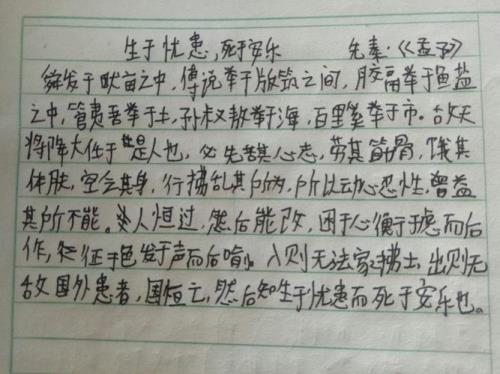 生于忧患,死于安乐 先秦·《孟子》
舜发于畎亩之中,傅说举于版筑之间,胶鬲举于鱼盐
之中,管夷吾举于士,孙叔敖举于海,百里奚举于市。故天
将降大任于是人也,必先苦其心志,劳其筋骨,饿其
体肤,空乏其身,行拂乱其所为,所以动心忍性,曾益
其所不能。人恒过,然后能改,困于心衡于虑而后
作,征于色发于声而后喻。入则无法家拂士,出则无
敌国外患者,国恒亡,然后知生于忧患而死于安乐也。